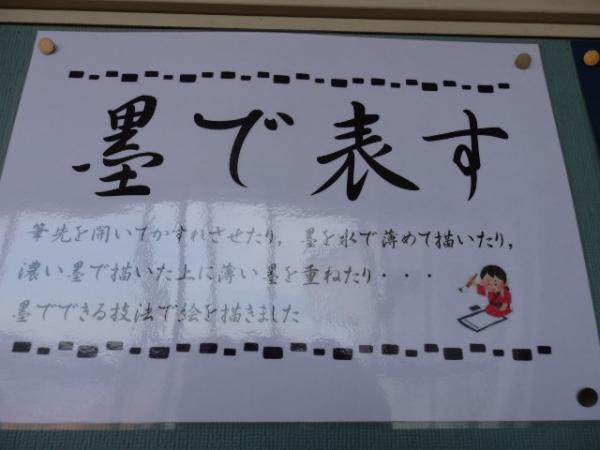 墨で表す
筆先を開いてかすれさせたり，墨を水で薄めて描いたり，
濃い墨で描いた上に薄い墨を重ねたり・・・
墨でできる技法で絵を描きました